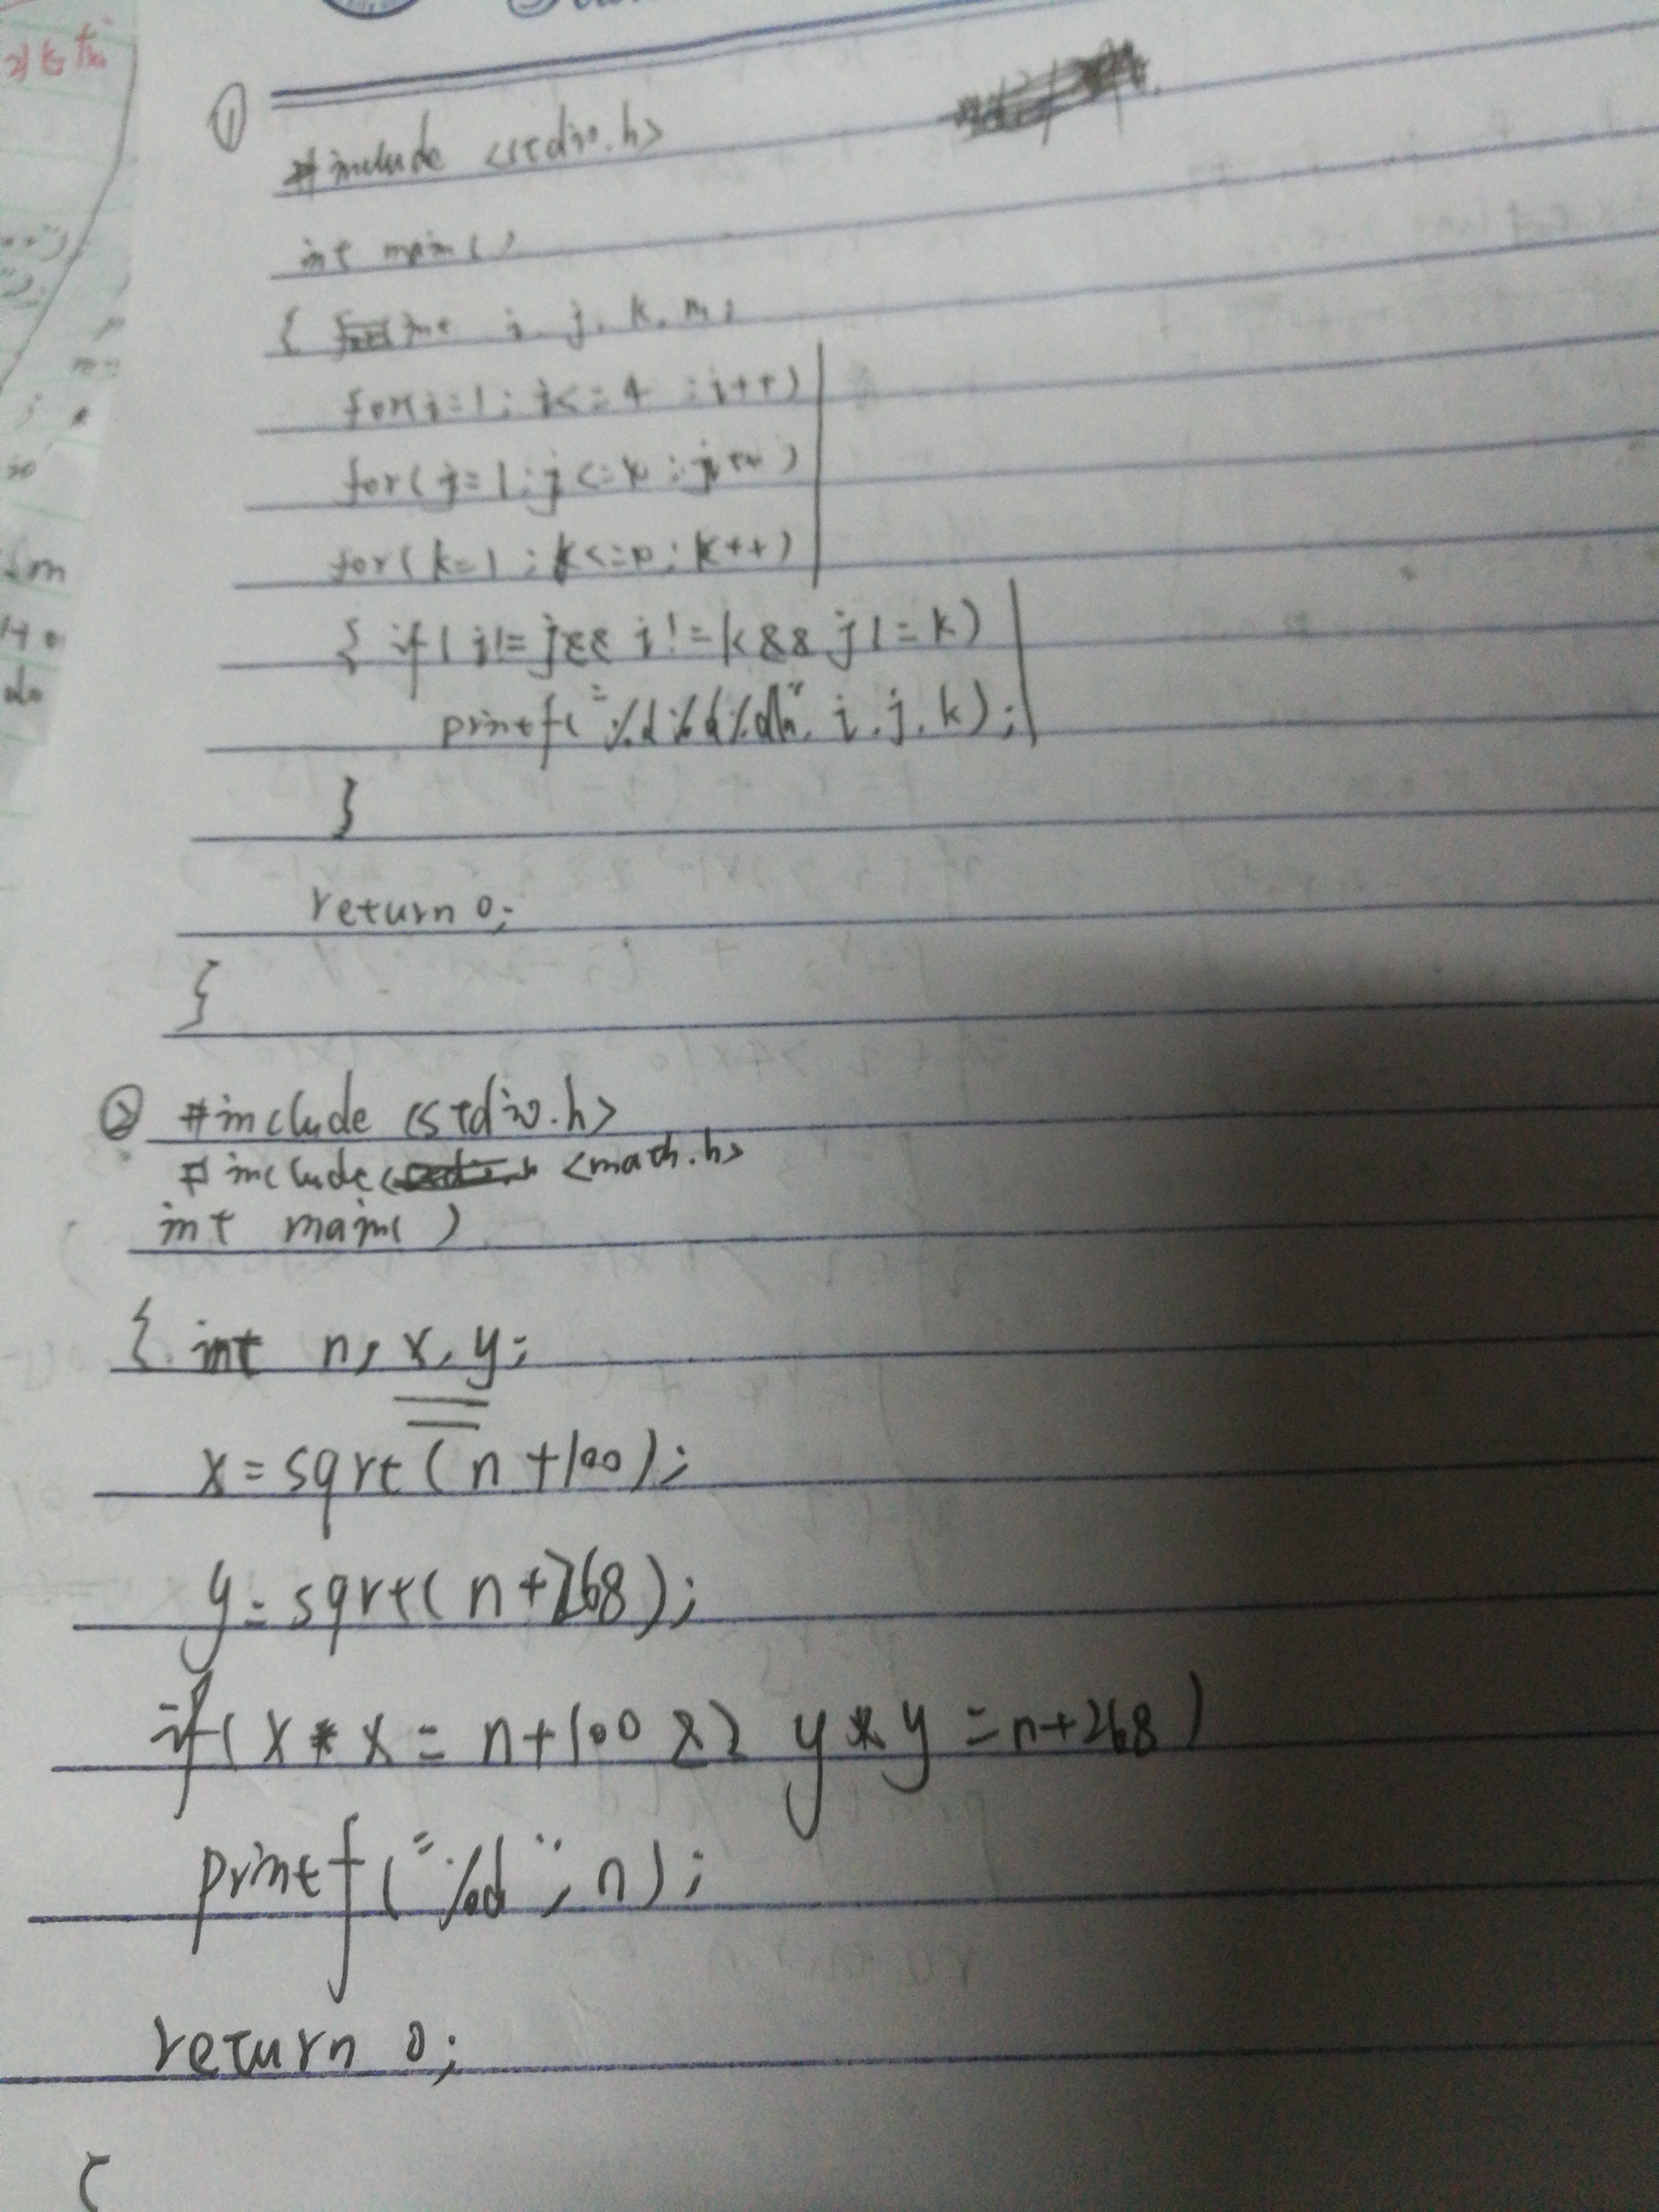 ①
#include <stdio.h>
int main()
{ int i, j, k, m;
for(i=1; i<=4 ; i++)
for(j=1; j<= ; j++)
for(k=1 ; k<= ; k++)
{ if(i!=j&& i!=k&& j!=k)
printf("%d%d%d\n", i,j,k);
}
return 0;
}
② #include <stdio.h>
#include <math.h>
int main( )
{ int n, x, y;
x=sqrt(n+100);
y=sqrt(n+268);
if(x*x=n+100 && y*y=n+268)
printf("%d", n);
return 0;